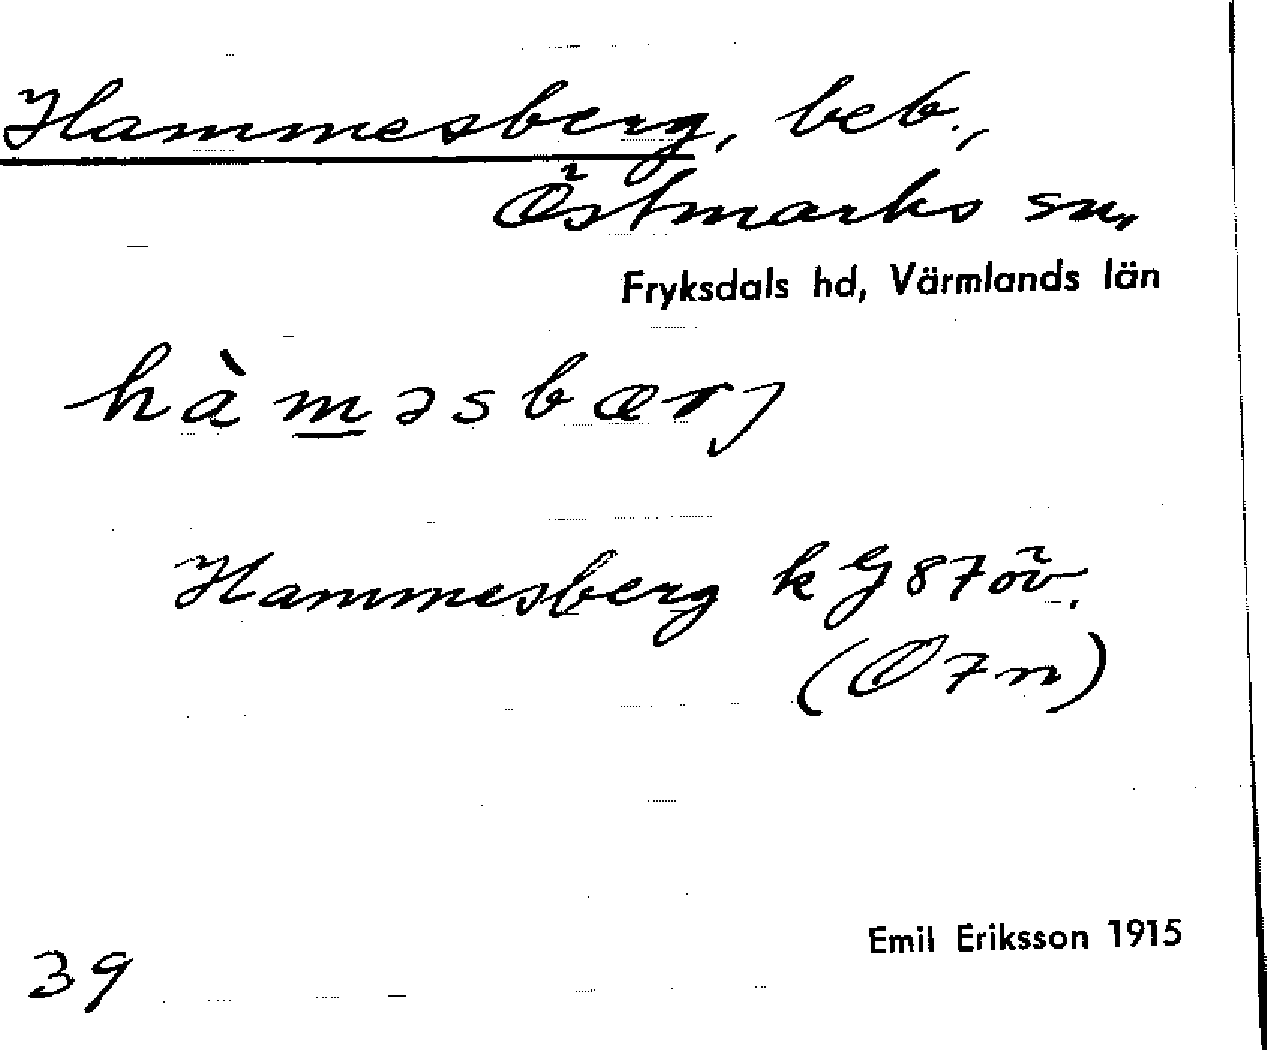 Hammesberg, beb.,
Östmarks sn,
Fryksdals hd, Värmlands län
hàm̲əsbærj
Hammesberg k G 87 öv.
(Ö 7 n)
Emil Eriksson 1915
39